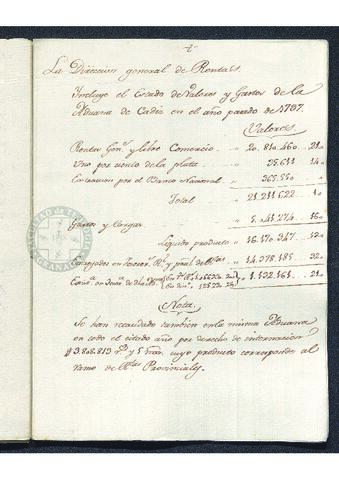 La Direccion general de Rentas.
Incluye el Estado de Valores y Gastos de la
Aduana de Cadiz en el año pasado de 1787.
Valores
Rentas Gen.s y libre Comercio . . " 20.810.460 .. 21
Uno por ciento de la plata . . " 35.611 .. 14
Extraccion por el Banco Nacional . " 365.550
Total " 21.211.622 .. 1
Gastos y Cargas " 5.041.274 ..
Liquido producto " 16.170.347 ..
" 14.378.185 ..
" 1.192.161 ..
Nota.
Se han recaudado tambien en la misma Aduana
en todo el citado año por derecho de internacion
3.808.813 r.s y 5 mrs. cuyo producto corresponde al
ramo de R.tas Provinciales.